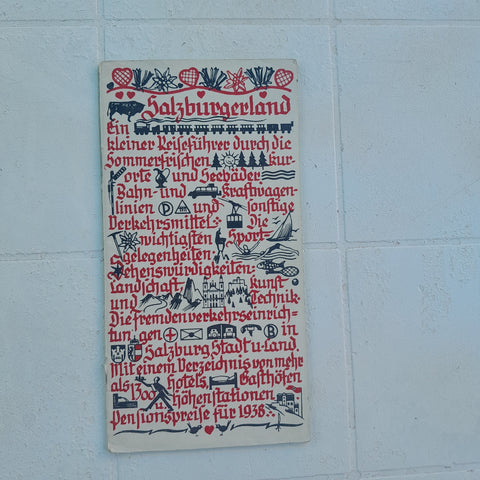 Salzburgerland
Ein
kleiner Reiseführer durch die
Sommerfrischen Kur-
orte und Seebäder
Bahn- und Kraftwagen-
linien P und sonstige
Verkehrsmittel: Die
wichtigsten Sport-
gelegenheiten.
Sehenswürdigkeiten:
Landschaft, Kunst
und Technik.
Die Fremdenverkehrseinrich-
tungen in
Salzburg, Stadt u. Land.
Mit einem Verzeichnis von mehr
als 1300 Hotels, Gasthöfen
u. Höhenstationen
Pensionspreise für 1938